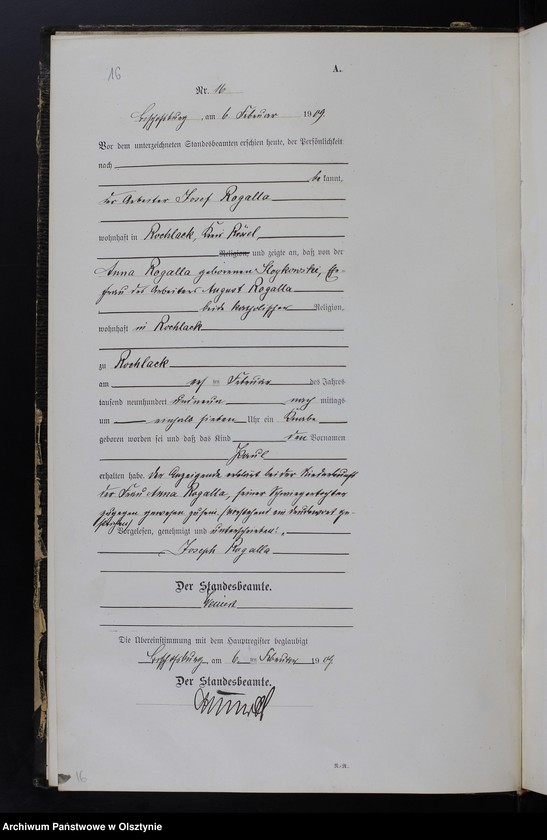 16
A.
Nr. 16
Bischofsburg, am 6. Februar 1909.
Vor dem unterzeichneten Standesbeamten erschien heute, der Persönlichkeit
nach
be kannt,
der Arbeiter Josef Rogalla
wohnhaft in Rochlack, Kreis Rössel,
Religion, und zeigte an, daß von der
Anna Rogalla geborenen, Ehe-
frau des Arbeiters August Rogalla
beide katholischer Religion,
wohnhaft in Rochlack
zu Rochlack
am Februar des Jahres
tausend neunhundert und neun nach mittags
um einhalb sieben Uhr ein Knabe
geboren worden sei und daß das Kind den Vornamen
Paul
erhalten habe. Der Anzeigende erklärt bei der Niederkunft
der Frau Anna Rogalla, seiner Schwiegertochter
zugegen gewesen zu sein. (Vorstehend ein Druckwort ge-
strichen)
Vorgelesen, genehmigt und unterschrieben.
Joseph Rogalla
Der Standesbeamte.
Die Übereinstimmung mit dem Hauptregister beglaubigt
Bischofsburg, am 6. Februar 1909
Der Standesbeamte.
R.-R.
16
Archiwum Państwowe w Olsztynie